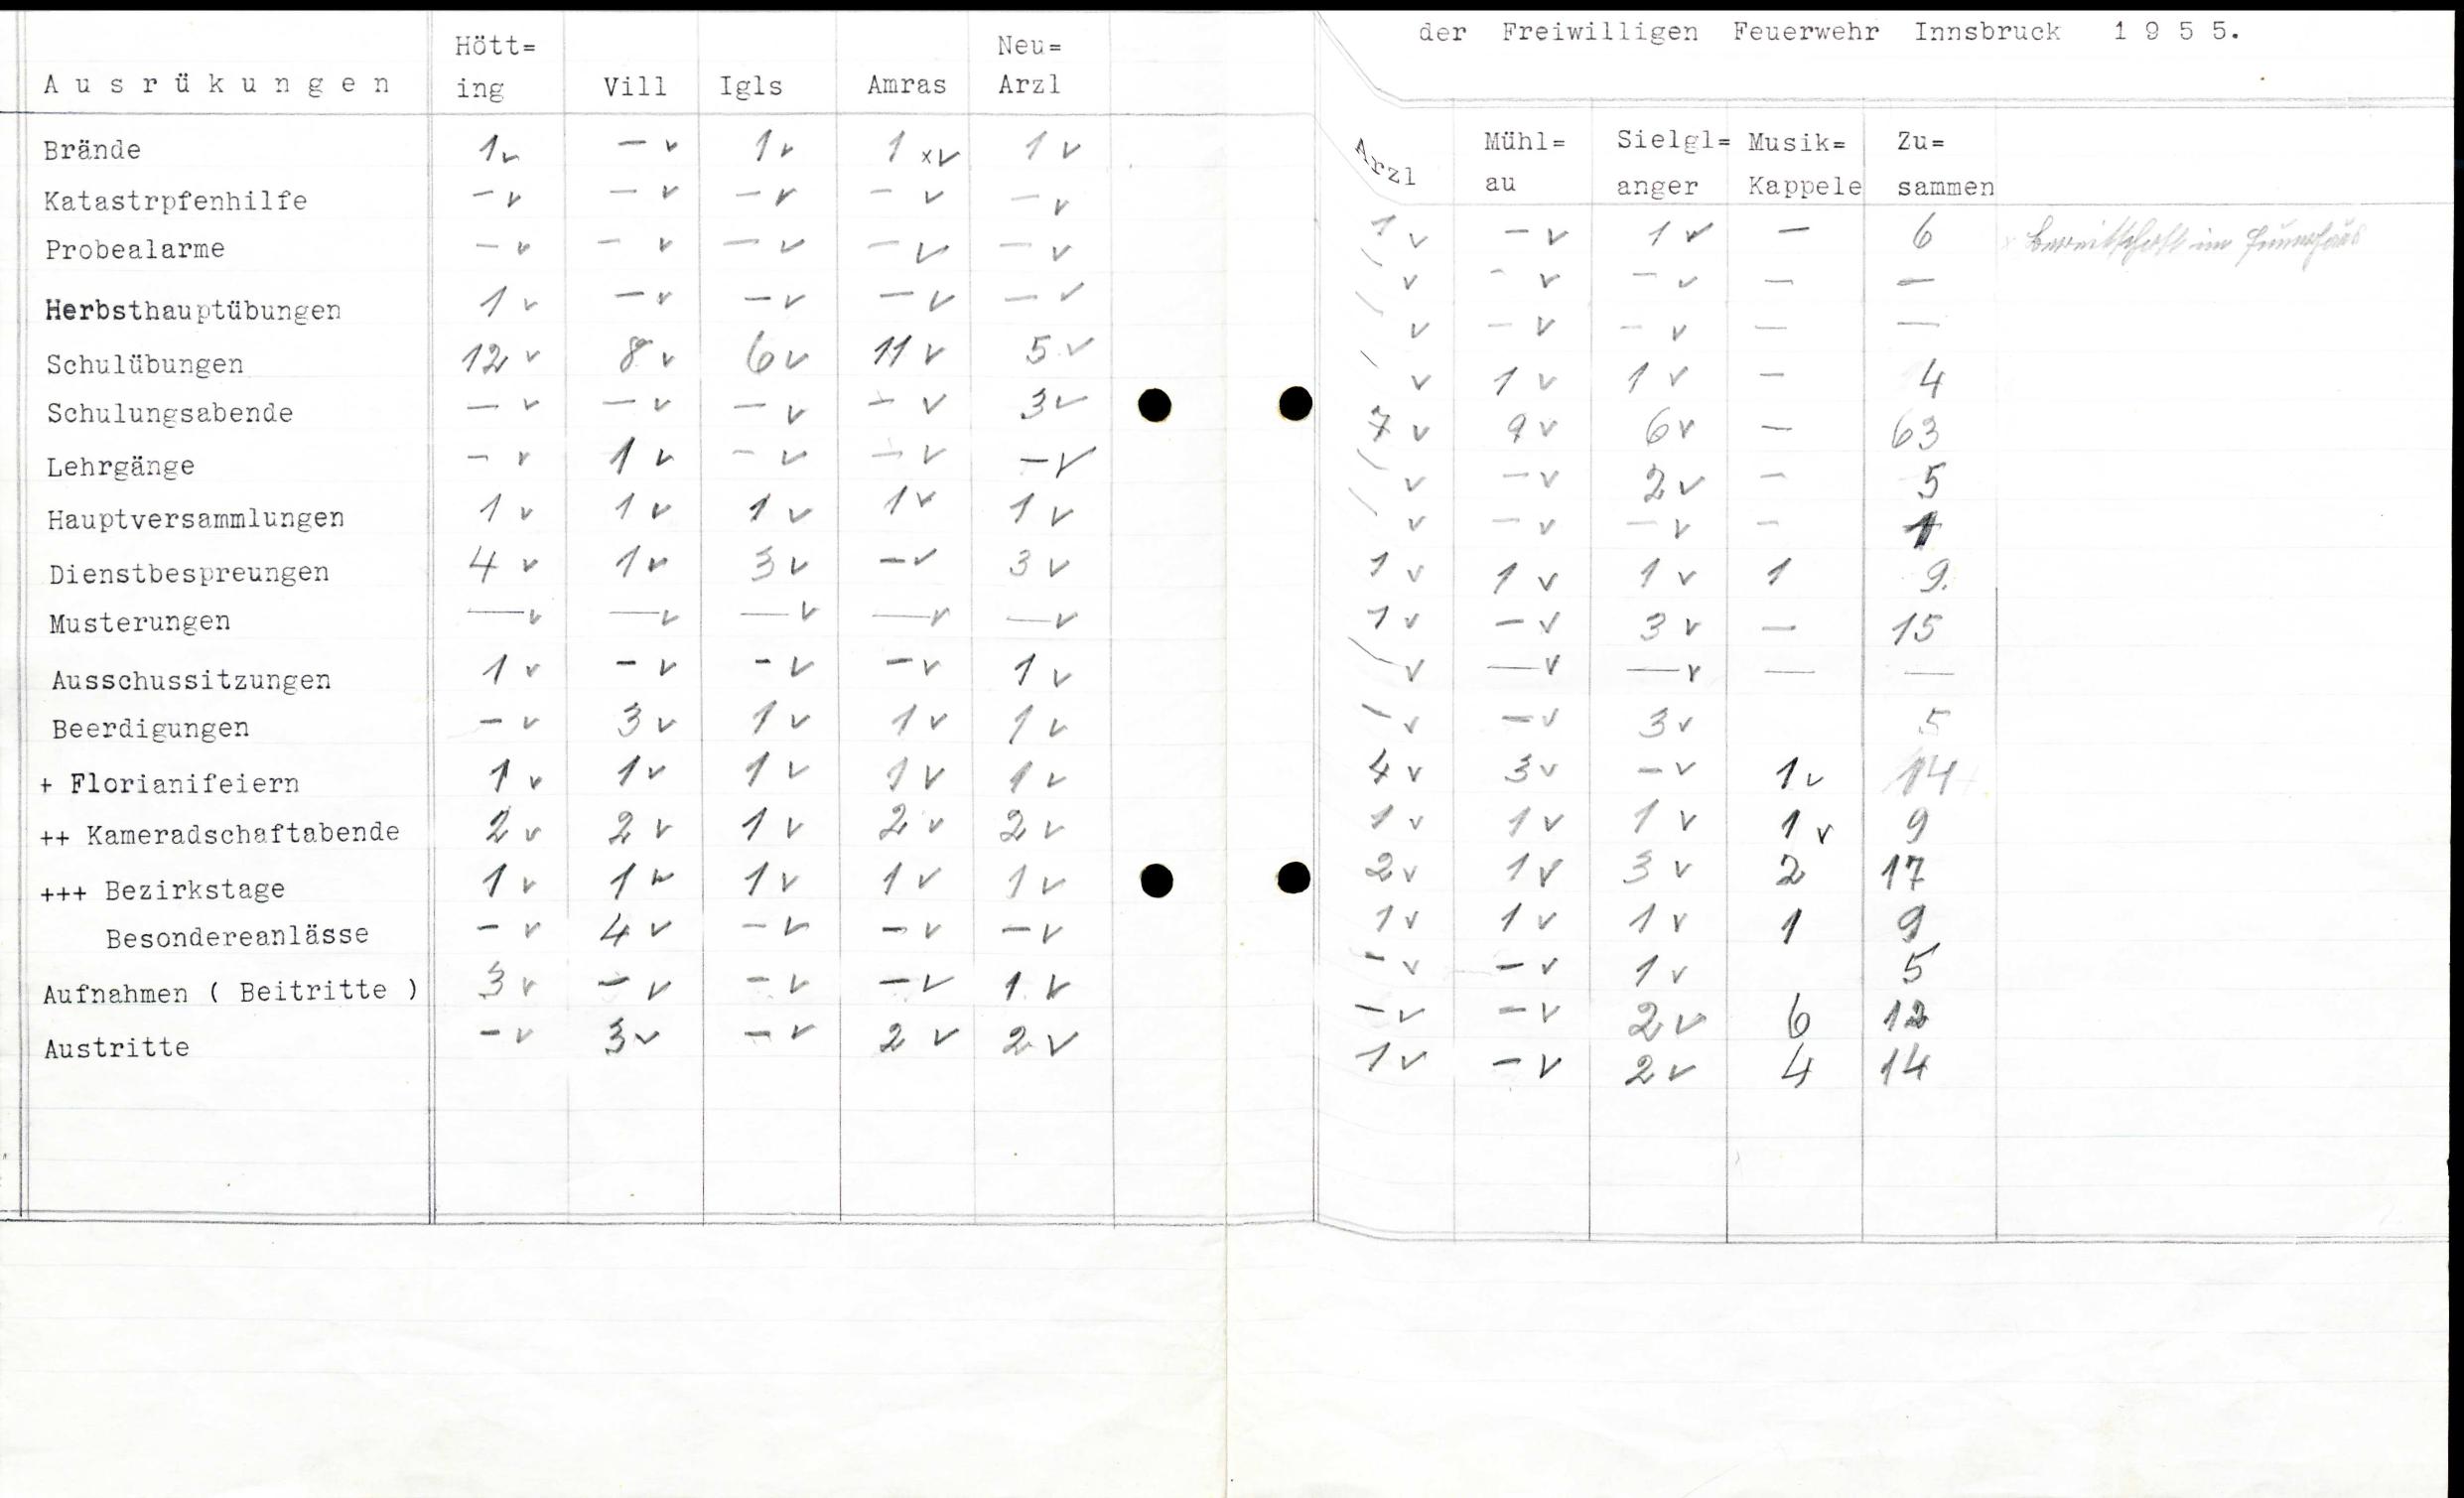 der Freiwilligen Feuerwehr Innsbruck 1 9 5 5.
A u s r ü k u n g e n Hött= ing Vill Igls Amras Neu= Arzl Arzl Mühl= au Sielgl= anger Musik= Kappele Zu= sammen
Brände 1 v — v 1 v 1 x v 1 v 1 v — v 1 v — 6 x Bereitschaft im
Katastrpfenhilfe — v — v — v — v — v — v — v — v — —
Probealarme — v — v — v — v — v — v — v — v — —
Herbsthauptübungen 1 v — v — v — v — v — v 1 v 1 v — 4
Schulübungen 12 v 8 v 6 v 11 v 5 v 7 v 9 v 6 v — 63
Schulungsabende — v — v — v — v 3 v — v — v 2 v — 5
Lehrgänge — v 1 v — v — v — v — v — v — v — 1
Hauptversammlungen 1 v 1 v 1 v 1 v 1 v 1 v 1 v 1 v 1 9.
Dienstbespreungen 4 v 1 v 3 v — v 3 v 1 v — v 3 v — 15
Musterungen — v — v — v — v — v — v — v — v — —
Ausschussitzungen 1 v — v — v — v 1 v — v — v 3 v 5
Beerdigungen — v 3 v 1 v 1 v 1 v 4 v 3 v — v 1 v 14
+ Florianifeiern 1 v 1 v 1 v 1 v 1 v 1 v 1 v 1 v 1 v 9
++ Kameradschaftabende 2 v 2 v 1 v 2 v 2 v 2 v 1 v 3 v 2 17
+++ Bezirkstage 1 v 1 v 1 v 1 v 1 v 1 v 1 v 1 v 1 9
Besondereanlässe — v 4 v — v — v — v — v — v 1 v 5
Aufnahmen ( Beitritte ) 3 v — v — v — v 1 v — v — v 2 v 6 12
Austritte — v 3 v — v 2 v 2 v 1 v — v 2 v 4 14